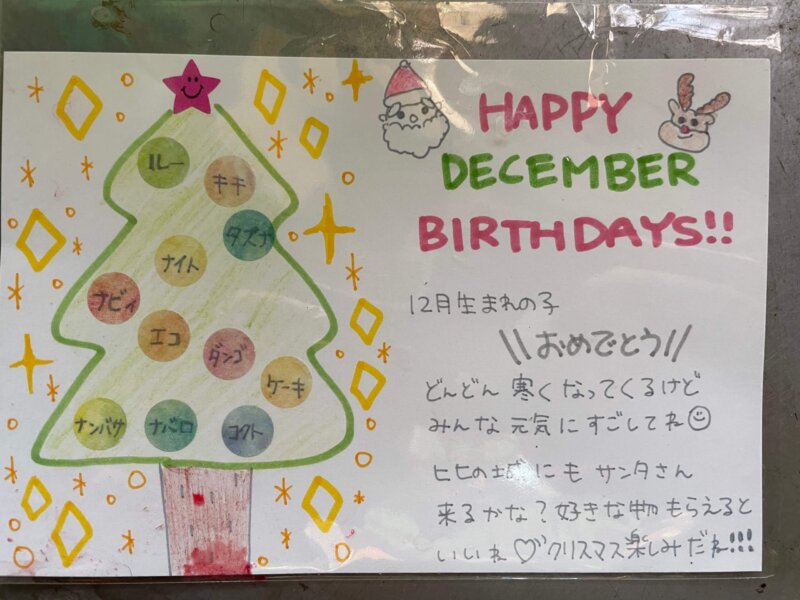 ルー
キキ
タズナ
ナイト
ナビィ
エコ
ダンゴ
ケーキ
ナンバサ
ナバロ
コクト
HAPPY
DECEMBER
BIRTHDAYS!!
12月生まれの子
\\おめでとう//
どんどん 寒くなってくるけど
みんな 元気に すごしてね☺
ヒヒの城にも サンタさん
来るかな?好きな物もらえると
いいね♡クリスマス楽しみだね!!!